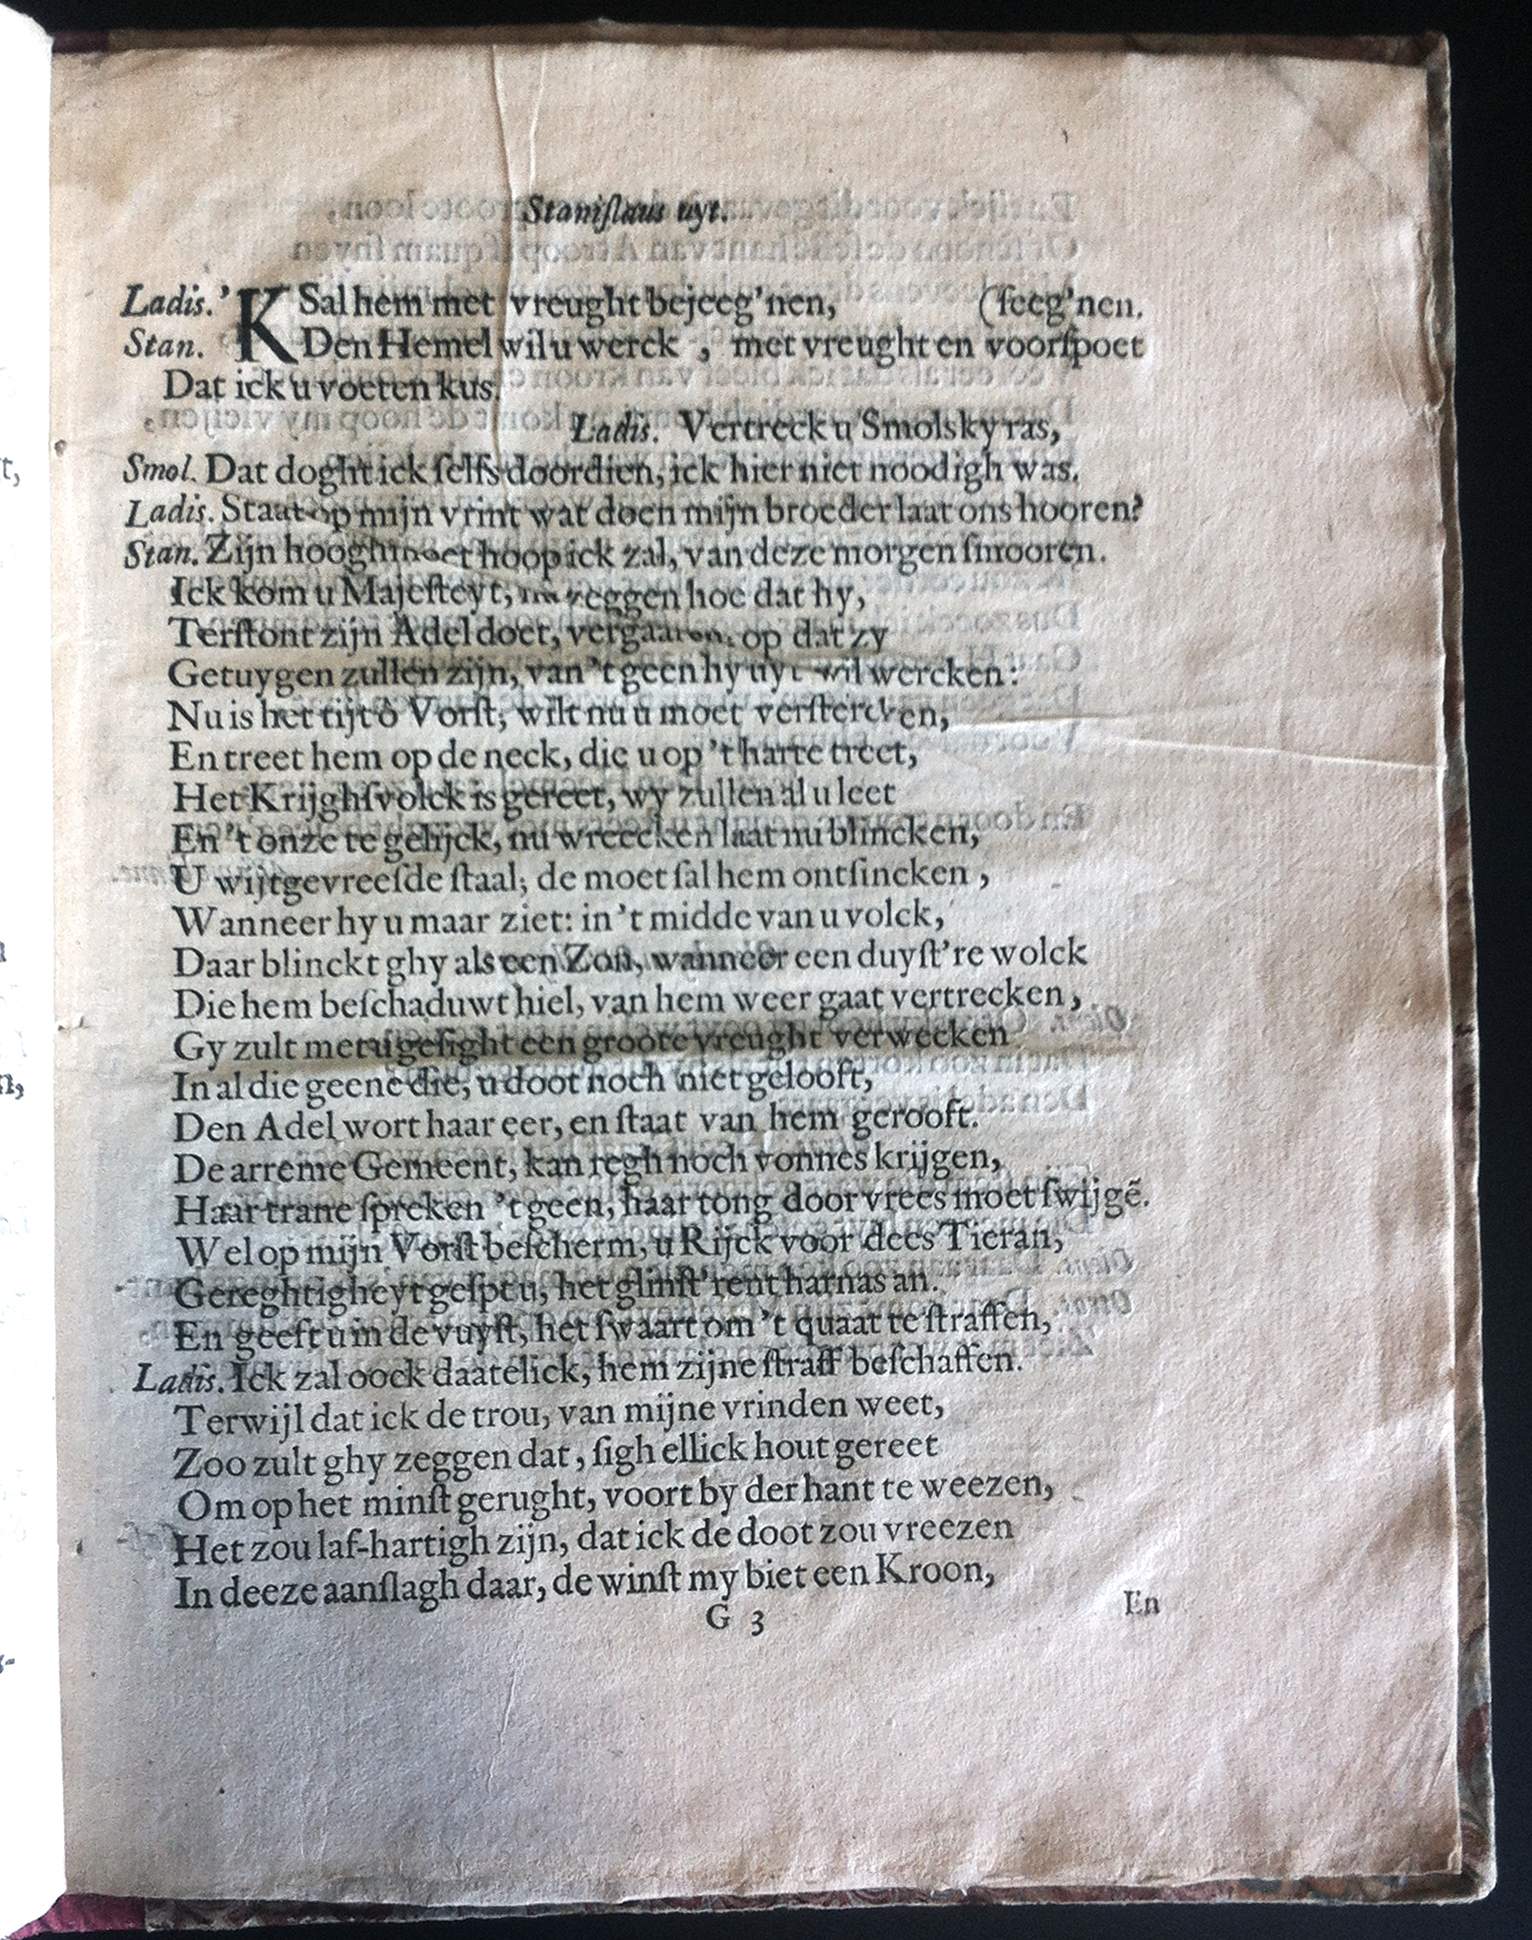 Staniſlaus uyt.
Ladis. 'K Sal hem met vreught bejeeg'nen, (ſeeg'nen.
Stan. Den Hemel wil u werck , met vreught en voorſpoet
Dat ick u voeten kus.
Ladis. Vertreck u Smolsky ras,
Smol. Dat doght ick ſelfs doordien, ick hier niet noodigh was.
Ladis. Staat op mijn vrint wat doen mijn broeder laat ons hooren?
Stan. Zijn hooghmoet hoop ick zal, van deze morgen ſmooren.
Ick kom u Majeſteyt, zeggen hoe dat hy,
Terſtont zijn Adel doet, vergaaren, op dat zy
Getuygen zullen zijn, van 't geen hy uyt wil wercken:
Nu is het tijt ô Vorſt, wilt nu u moet verſtercken,
En treet hem op de neck, die u op 't harte treet,
Het Krijghſvolck is gereet, wy zullen al u leet
En 't onze te gelijck, nu wreecken laat nu blincken,
U wijtgevreeſde ſtaal; de moet ſal hem ontſincken ,
Wanneer hy u maar ziet: in 't midde van u volck,
Daar blinckt ghy als een Zon, wanneer een duyſt're wolck
Die hem beſchaduwt hiel, van hem weer gaat vertrecken,
Gy zult met u geſight een groote vreught verwecken
In al die geene die, u doot noch niet gelooft,
Den Adel wort haar eer, en ſtaat van hem gerooft.
De arreme Gemeent, kan regh noch vonnes krijgen,
Haar trane ſpreken 't geen, haar tong door vrees moet ſwijgẽ.
Wel op mijn Vorſt beſcherm, u Rijck voor dees Tieran,
Gereghtigheyt geſpt u, het glinſt'rent harnas an.
En geeft u in de vuyſt, het ſwaart om 't quaat te ſtraffen,
Ladis. Ick zal oock daatelick, hem zijne ſtraff beſchaffen.
Terwijl dat ick de trou, van mijne vrinden weet,
Zoo zult ghy zeggen dat, ſigh ellick hout gereet
Om op het minſt gerught, voort by der hant te weezen,
Het zou laf-hartigh zijn, dat ick de doot zou vreezen
In deeze aanſlagh daar, de winſt my biet een Kroon,
G 3 En